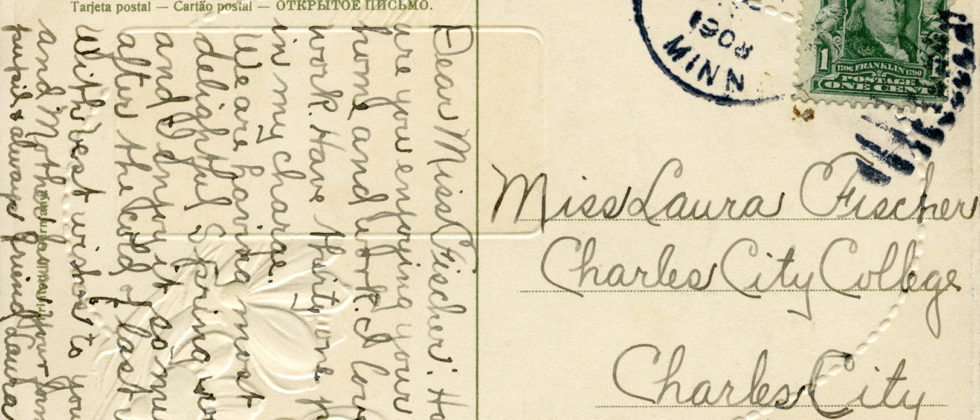 Tarjeta postal — Cartão postal — ОТКРЫТОЕ ПИСЬМО.
Dear Miss Fischer: Ho
are you enjoying your
home and work. I lov
work. Have thirty one p
in my charge.
We are having most
delightful Spring w
and I enjoy it so mu
after the cold of last
With best wishes to you
and Mother your form
pupil & always friend Laura
MINN
1908
1 1706 FRANKLIN 1790
POSTAGE
ONE CENT
Miss Laura Fischer
Charles City College
Charles City